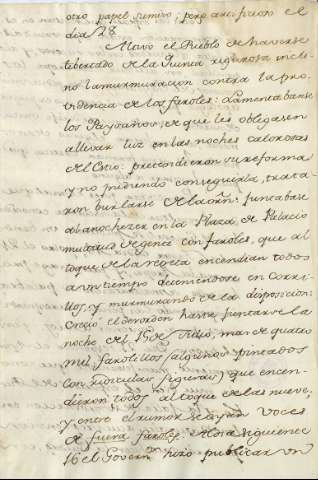 otro papel
dia 28.
el Pueblo de haverse
libertado de la Quinta rigurosa
no la murmuracion contra la pro
videncia de los faroles: Lamentabanse
los Paysanos, de que les obligasen
a llevar luz en las noches calorosas
del Estio: pretendieron su reforma
y no pudiendo conseguirla, trata
ron burlarse de la orñ: juntabase
al anochezer en la Plaza de Palacio
multitud de gente con faroles, que al
toque de la encendian todos
a un tiempo deteniendose en Corri
llos, y murmurando de la disposicion:
Crecio el desorden hasta juntarse la
noche del 15 de Julio, mas de quatro
mil farolillos (algunos pintados
con ridiculas figuras) que encen
dieron todos al toque de las nueve,
y entre el rumor voces
de fuera faroles. Al dia siguiente
16 el Govern.ʳ hizo publicar un